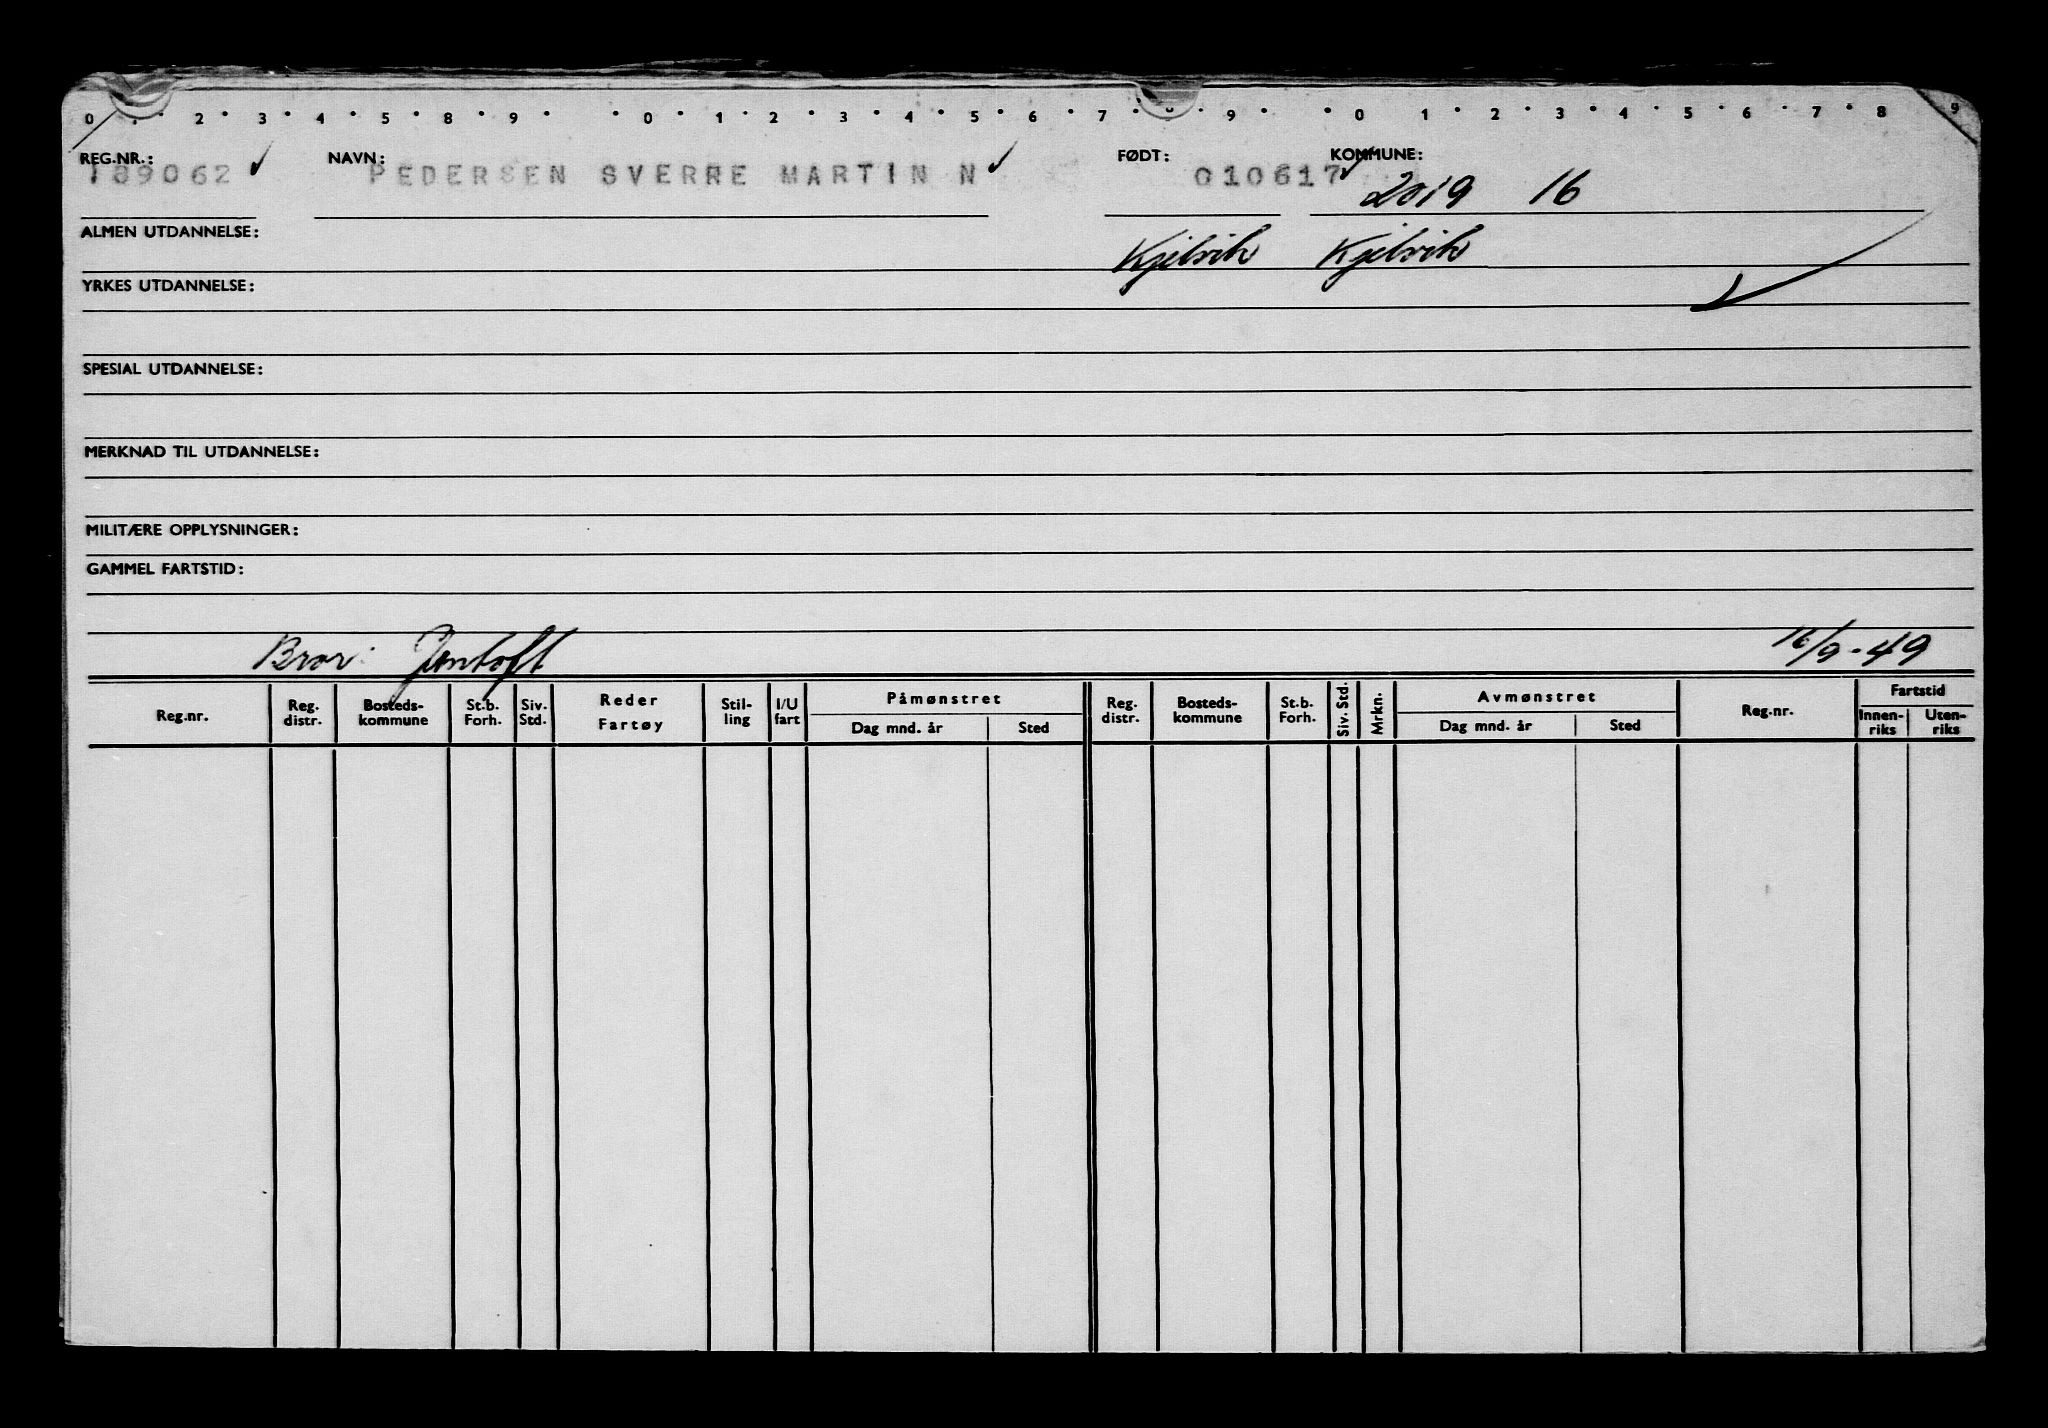 0 · 2 · 3 · 4 · 5 · 8 · 9 · · 0 · 1 · 2 · 3 · 4 · 5 · 6 · 7 · · 9 · · 0 · 1 · 2 · 3 · 4 · 5 · 6 · 7 · 8 9
REG.NR.: NAVN: FØDT: KOMMUNE:
189062 PEDERSEN SVERRE MARTIN N 010617 2019 16
ALMEN UTDANNELSE: Kjelvik Kjelvik
YRKES UTDANNELSE:
SPESIAL UTDANNELSE:
MERKNAD TIL UTDANNELSE:
MILITÆRE OPPLYSNINGER:
GAMMEL FARTSTID:
Bror: Jentoft 16/9-49
Reg.nr. Reg. distr. Bosteds-kommune St.b. Forh. Siv. Std. Reder Fartøy Stil-ling I/U fart Påmønstret Dag mnd. år Sted Reg. distr. Bosteds-kommune St.b. Forh. Siv. Std. Mrkn. Avmønstret Dag mnd. år Sted Reg.nr. Fartstid Innen-riks Uten-riks